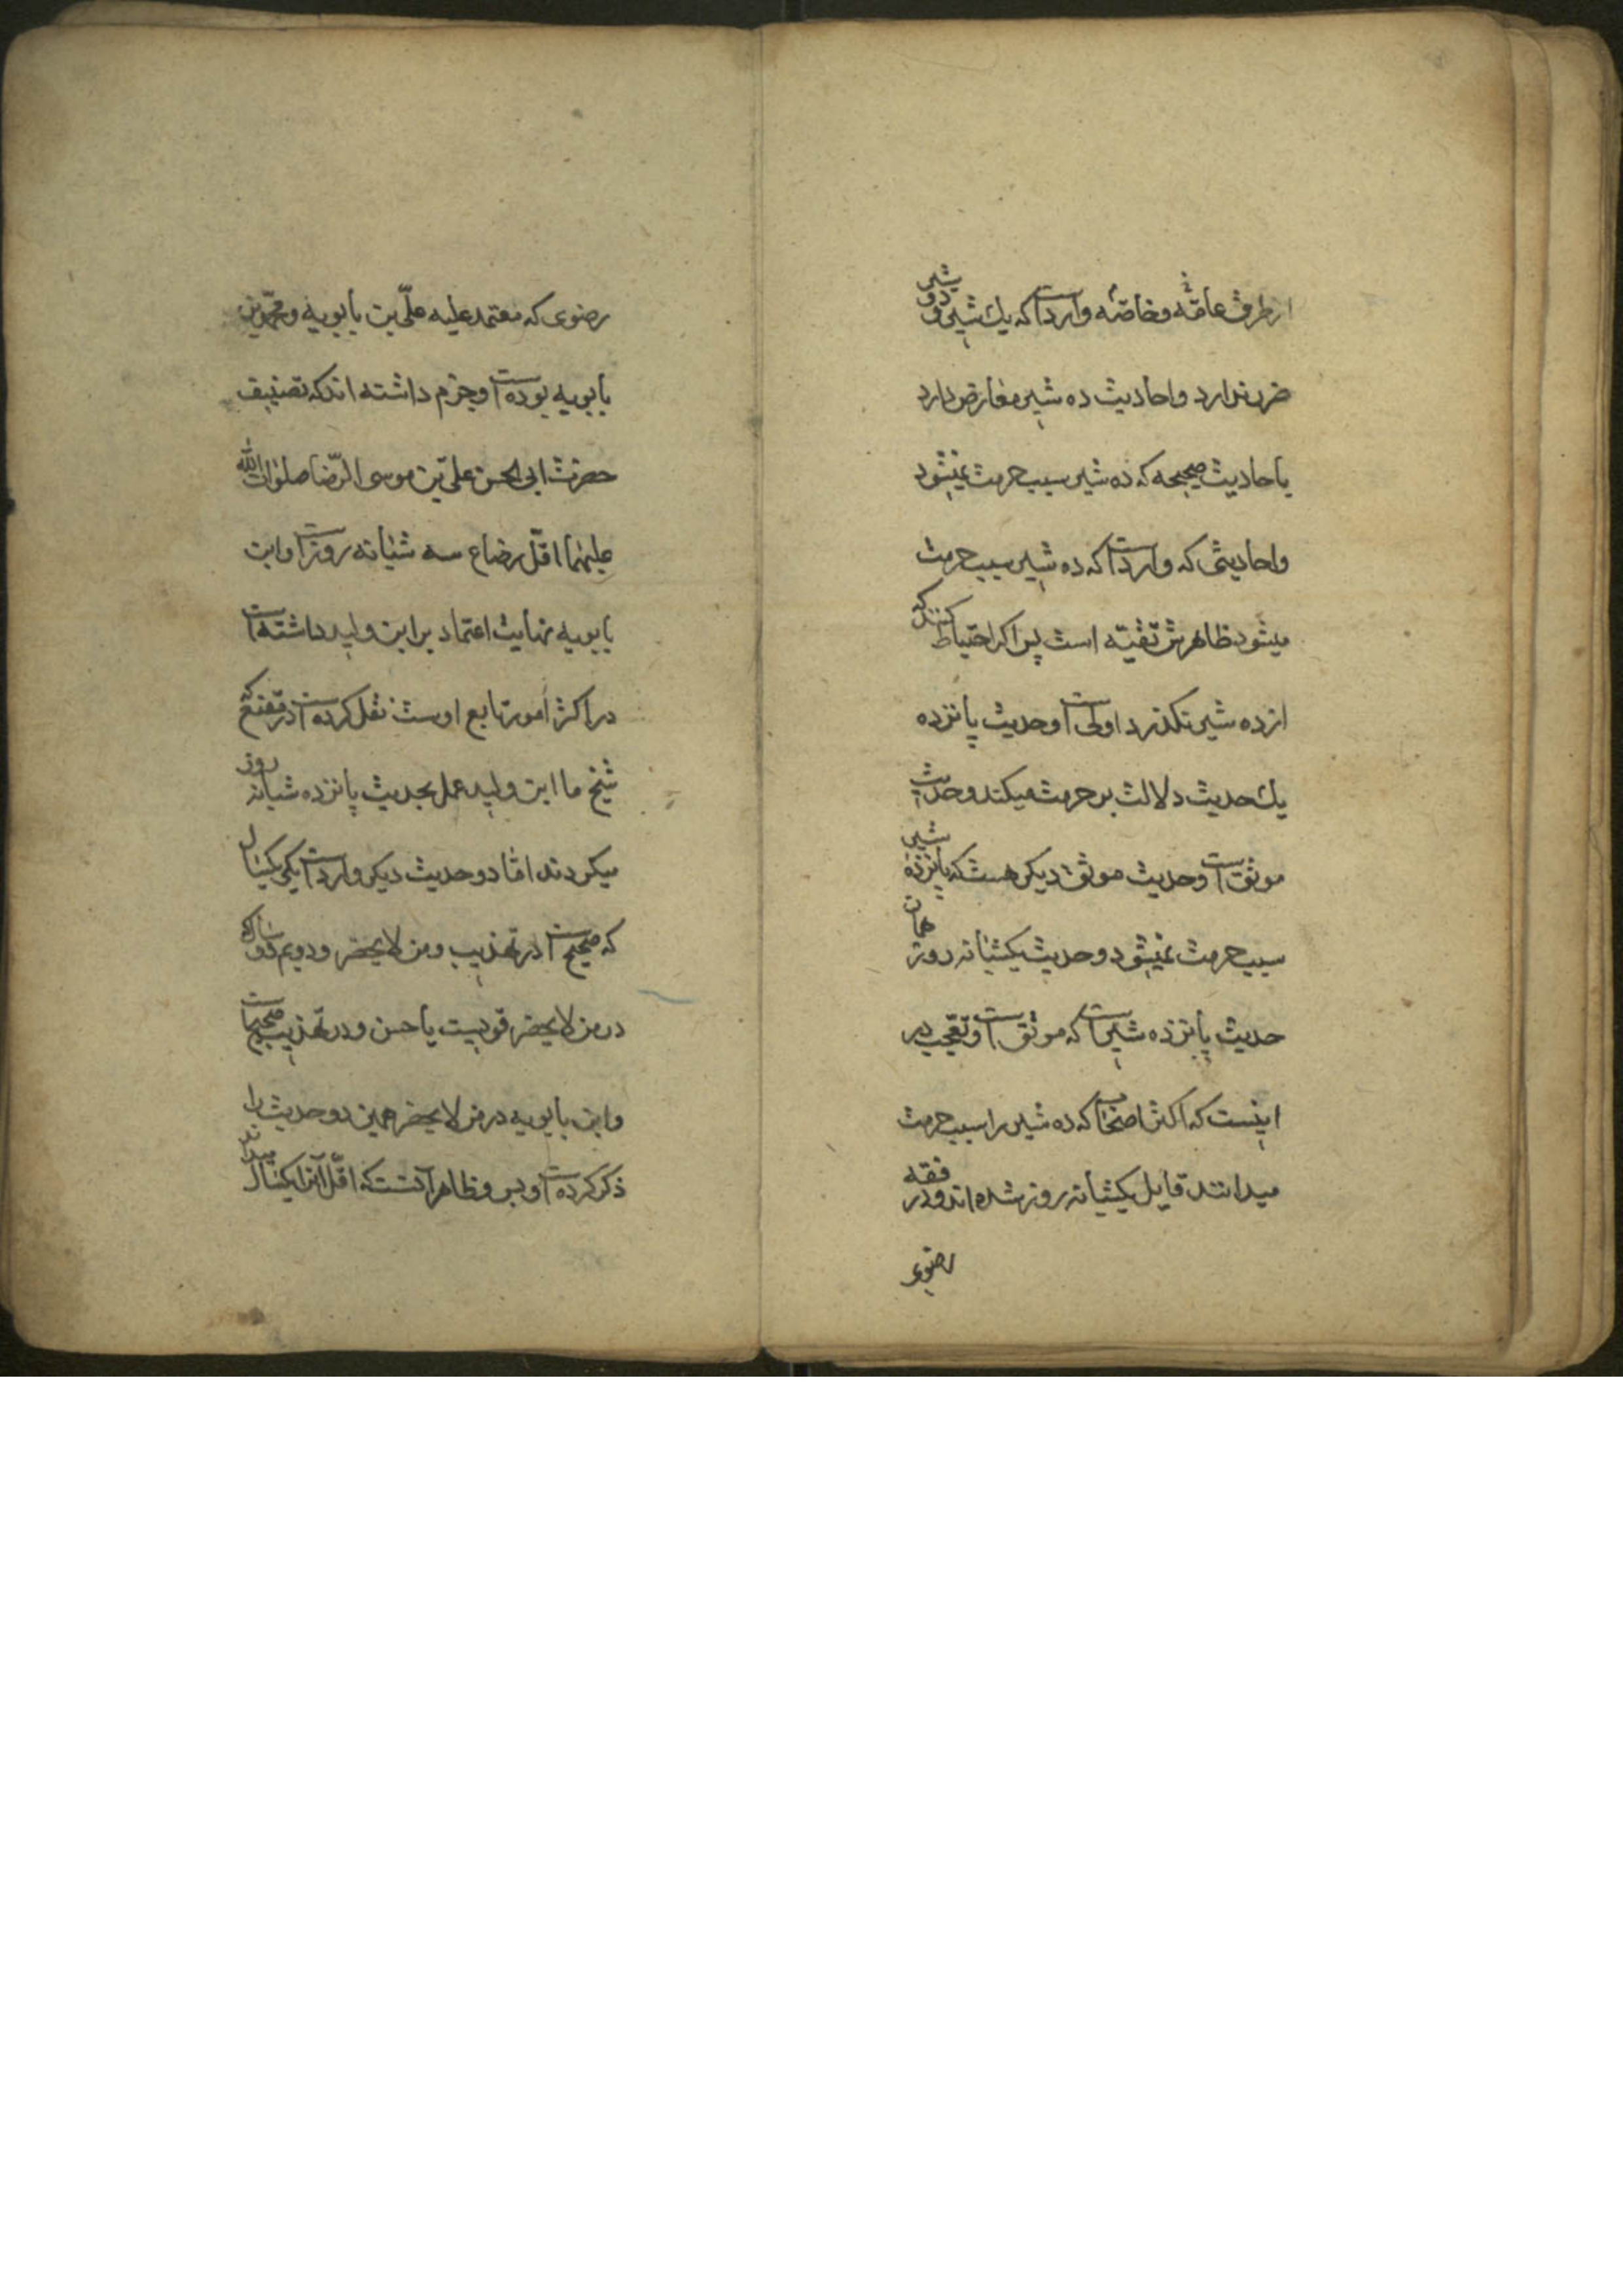 از طرف عامّه و خاصّه وارد است که یک شیر و دو شیر
ضرر ندارد و احادیث ده شیر معارض دارد
باحادیث صحیحه که ده شیر سبب حرمت نمیشود
و احادیثی که وارد است که ده شیر سبب حرمت
میشود ظاهرش تقیّه است پس اکر احتیاط کنند که
از ده شیر نکذرد اولی است و حدیث پانزده
یک حدیث دلالت بر حرمت میکند و حدیث
موثق است و حدیث موثق دیکر هست که پانزده شیر
سبب حرمت نمیشود و حدیث یکشبانه روز همان
حدیث پانزده شیر است که موثق است و تعجب در
اینست که اکثر اصحاب که ده شیر را سبب حرمت
میدانند قایل بیکشبانه روز شده اند و در فقه
رضوی
رضوی که معتمد علیه علیّ بن بابویه و محمّد بن
بابویه بوده است و جزم داشته اند که تصنیف
حضرت ابی الحسن علیّ بن موسی الرّضا صلوات الله
علیهما اقلّ رضاع سه شبانه روز است و ابن
بابویه نهایت اعتماد بر ابن ولید داشته است
در اکثر امور تابع اوست نقل کرده است در مقنع که
شیخ ما ابن ولید عمل بحدیث پانزده شبانه روز
میکردند امّا دو حدیث دیکر وارد است یکی یکسال
که صحیح است در تهذیب و من لا یحضر و دویم دو ساله
در من لا یحضر قویست یا حسن و در تهذیب صحیح است
و ابن بابویه در من لا یحضر همین دو حدیث را
ذکر کرده است و بس و ظاهرا آنست که اقلّ آنرا یکسال میداند